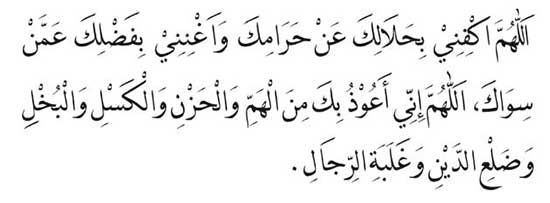 اَللّٰهُمَّ اكْفِنِيْ بِحَلَالِكَ عَنْ حَرَامِكَ وَاَغْنِنِيْ بِفَضْلِكَ عَمَّنْ
سِوَاكَ، اَللّٰهُمَّ إِنِّي أَعُوْذُ بِكَ مِنَ الْهَمِّ وَالْحَزْنِ وَالْكَسْلِ وَالْبُخْلِ
وَضَلْعِ الدَّيْنِ وَغَلَبَةِ الرِّجَالِ.